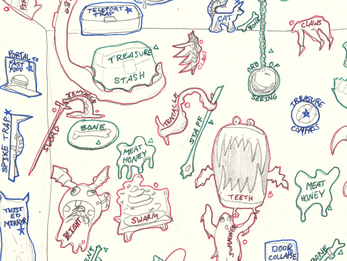 TELEPORT
TRAP
CAT
CLAWS
PORTAL TO
FAST
FOOD
TREASURE
STASH
CLAW
ORB OF
SEEING
TENTACLE
SWORD
BONE
TENTACLE
STAFF
TREASURE
COMPASS
SPIKE TRAP
MEAT
HONEY
TEETH
MEAT
HONEY
TWIST
ED
MIRROR
BLIGHT
SWARM
SUMMON
DOOR
COLLAPSE
BONE